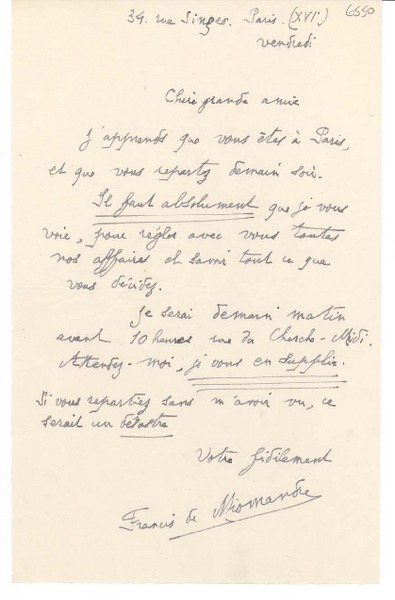 6550
34 rue Singer. Paris. (XVI)
vendredi
Chère grande amie
J'apprends que vous êtes à Paris,
et que vous repartez demain soir.
Il faut absolument que je vous
voie, pour régler avec vous toutes
nos affaires et savoir tout ce que
vous décidez.
Je serai demain matin
avant 10 heures rue du Cherche-Midi.
Attendez-moi, je vous en supplie.
Si vous repartiez sans m'avoir vu, ce
serait un désastre
Votre fidèlement
Francis de Miomandre